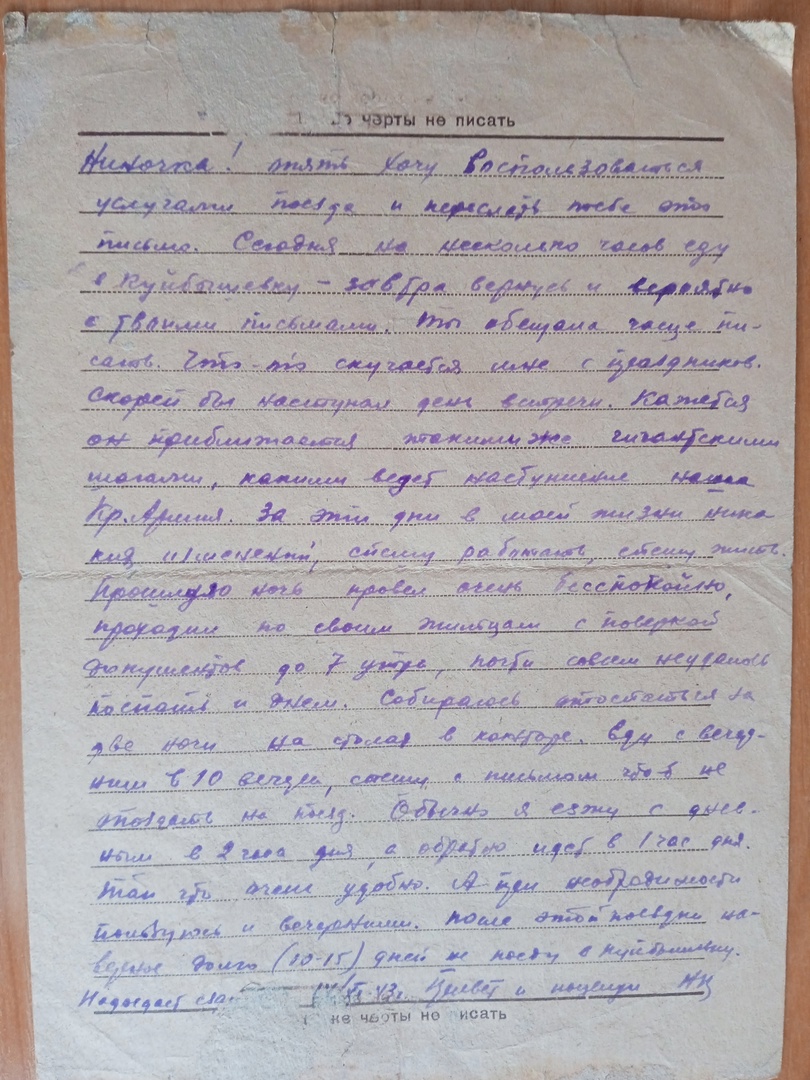 черты не писать
Ниночка! опять хочу воспользоваться
услугами поезда и переслать тебе это
письмо. Сегодня на несколько часов еду
в Куйбышевку – завтра вернусь и вероятно
с твоими письмами. Ты обещала чаще пи-
сать. Что-то скучается мне с праздников.
Скорей бы наступил день встречи. Кажется
он приближается такими же гигантскими
шагами, какими ведет наступление наша
Кр. Армия. За эти дни в моей жизни ника
ких изменений, спешу работать, спешу жить.
Прошлую ночь провел очень бесспокойно,
проходил по своим жильцам с поверкой
документов до 7 утра, почти совсем не удалось
поспать и днем. Собираюсь отоспаться за
две ночи на столах в конторе. Еду с вечер-
ним в 10 вечера, спешу с письмом чтоб не
опоздать на поезд. Обычно я езжу с днев-
ным в 2 часа дня, а обратно идет в 1 час дня.
Так что очень удобно. А при необходимости
пользуюсь и вечерними. После этой поездки на-
верное долго (10-15) дней не поеду в Куйбышевку.
Надоедает 43г. Привет и поцелуи
же черты не писать